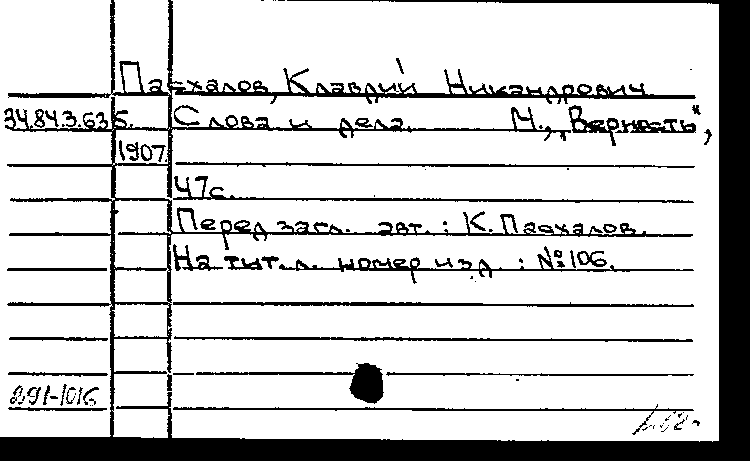 Пасхалов, Клавдий Никандрович.
34.84.3.63б. Слова и дела. М., „Верность“,
1907
47с.
Перед загл. авт.: К. Пасхалов.
На тит. л. номер изд.: №106.
891-1016